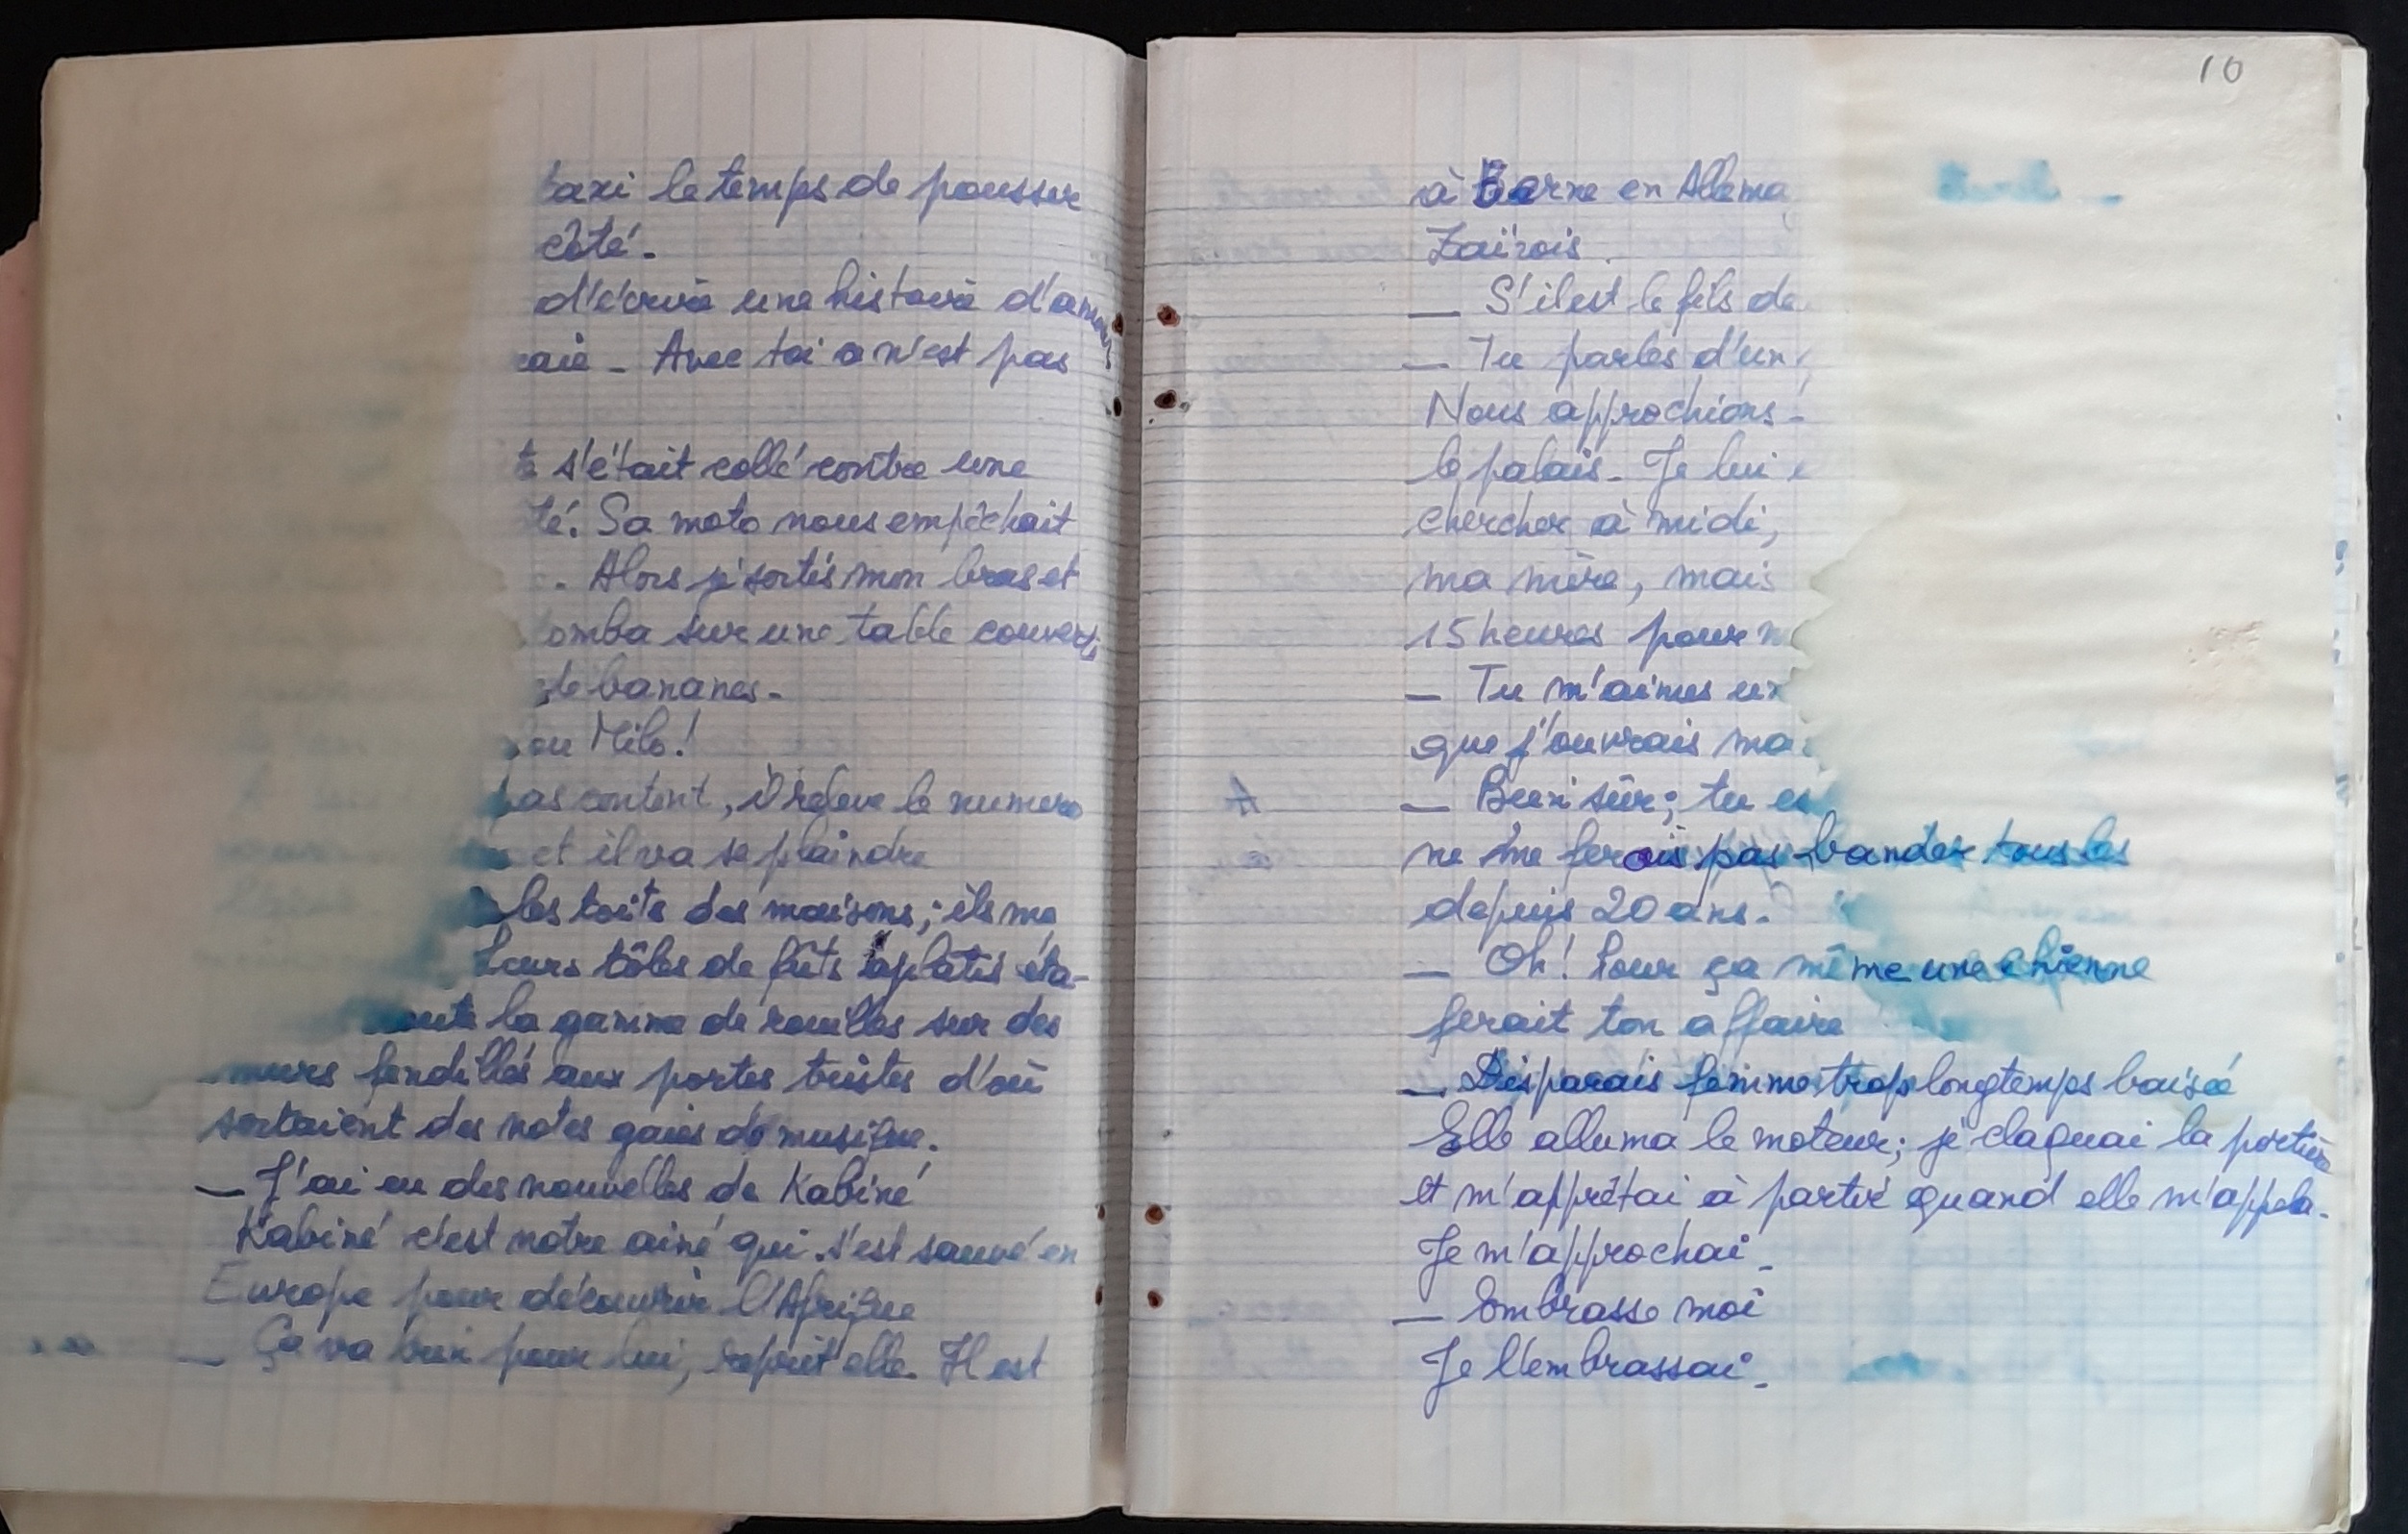 taxi le temps de pousser
côté.
d'écrire une histoire d'amour
Avec toi ce n'est pas
s'était collé contre une
té. Sa moto nous empêchait
. Alors je sortis mon bras et
tomba sur une table couverte
de bananes.
Milo!
pas content, il relève le numero
et il va se plaindre
les toits des maisons; ils me
Leurs tôles de fûts aplatis éta-
toute la gamme de rouilles sur des
murs fendillés aux portes tristes d'où
sortaient des notes gaies de musique.
— J'ai eu des nouvelles de Kabiné
Kabiné c'est notre ainé qui s'est sauvé en
Europe pour découvrir l'Afrique
— Ça va bien pour lui, reprit elle. Il est
10
à Berne en Allema
Zaïrois.
— S'il est le fils de
— Tu parles d'un
Nous approchions
le palais. Je lui
chercher à midi,
ma mère, mais
15 heures pour
— Tu m'aimes
que j'ouvrais ma
— Bien sûr; tu es
ne me ferais pas bander tous les
depuis 20 ans.
— Oh! Pour ça même une chienne
ferait ton affaire
— Disparais femme trop longtemps baisée
Elle alluma le moteur; je claquai la portière
et m'apprêtai à partir quand elle m'appela.
Je m'approchai.
— Embrasse moi
Je l'embrassai.